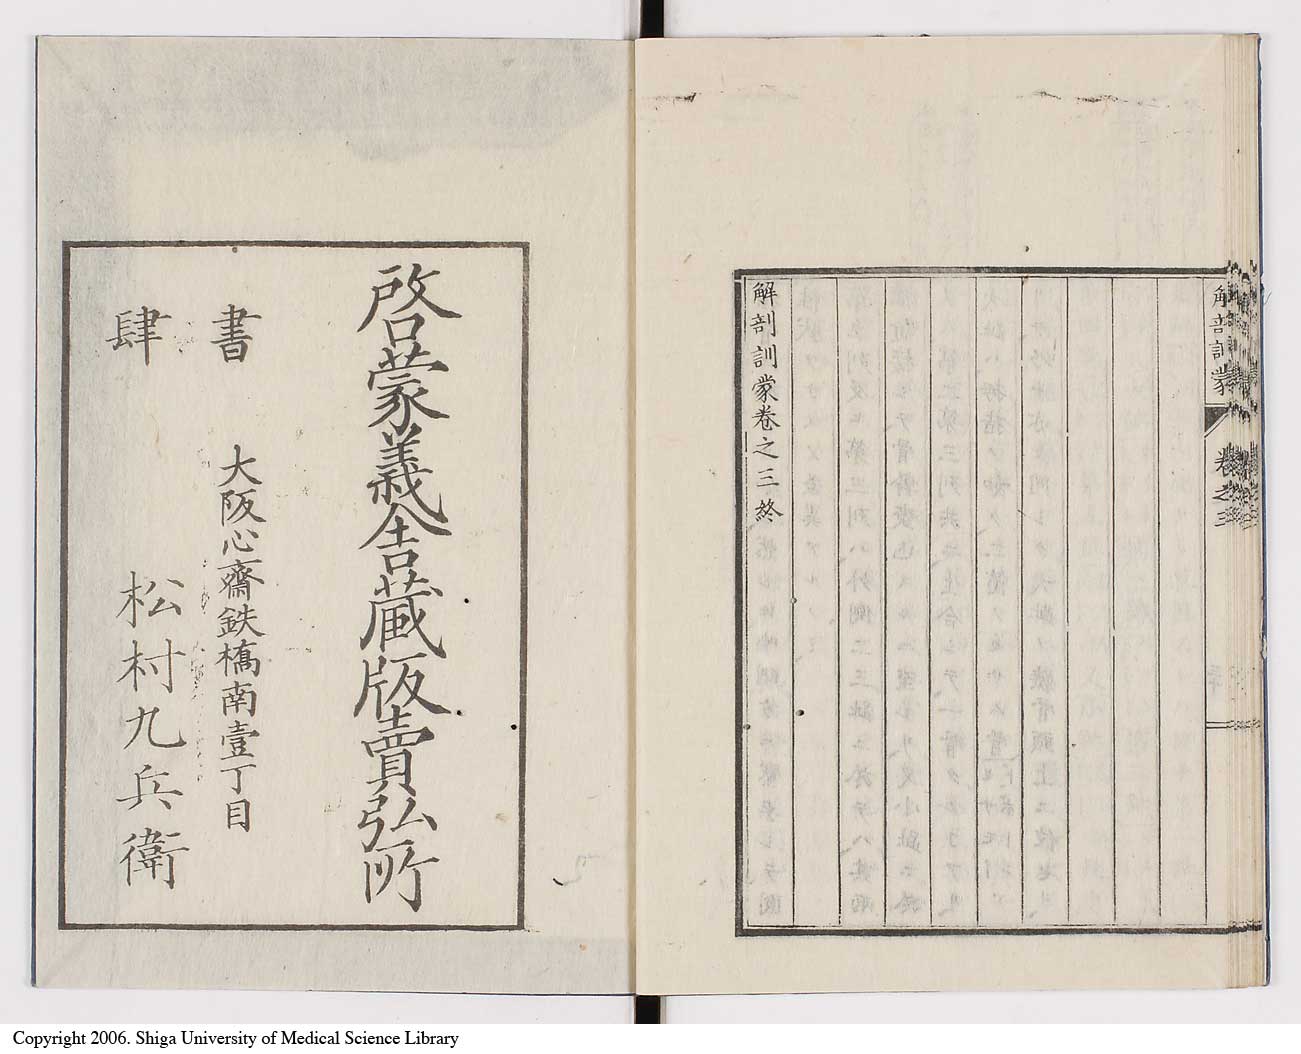 解剖訓蒙
卷之三
解剖訓蒙卷之三終
啓蒙義舎蔵版賣弘所
書
大阪心齋鉄橋南壹丁目
肆
松村九兵衛
Copyright 2006. Shiga University of Medical Science Library